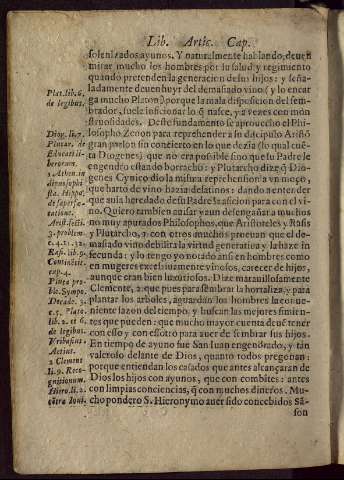 Lib. Artic. Cap.
solenizados ayunos. Y naturalmente hablando, deuen
mirar mucho los hombres por su salud y regimiento
quando pretenden la generacion de sus hijos: y seña-
ladamente deuen huyr del demasiado vino (y lo encar
ga mucho Platon) porque la mala disposicion del sem-
brador, suele inficionar lo q̃ nasce, y a vezes con mõs
truosidades. Deste fundamento se aprouecho el Phi-
losopho Zenon para reprehender a su discipulo Aristõ
gran parlon sin concierto en lo que dezia (lo qual cuẽ-
ta Diogenes) que no era possible sino que su Padre le
engendro estando borracho: y Plutarcho dize q̃ Dio-
genes Cynico dio la misma reprehension a vn moço,
que harto de vino hazia desatinos: dando a entender
que auia heredado de su Padre la aficion para con el vi-
no. Quiero tambien auisar y aun desengañar a muchos
no muy apurados Philosophos, que Aristoteles, y Rasis
y Plutarcho, y con otros muchos prueuan que el de-
masiado vino debilita la virtud generatiua y la haze in
fecunda: y lo tengo yo notado ansi en hombres como
en mugeres excessiuamente vinosos, carecer de hijos,
aunque eran bien luxuriosos. Dize marauillosamente
Clemente, a que pues para sembrar la hortaliza, y para
plantar los arboles, aguardan los hombres la conue-
niente sazon del tiempo, y buscan las mejores simien-
tes que pueden: que mucho mayor cuenta deuẽ tener
con esso y con essotro para auer de sembrar sus hijos.
En tiempo de ayuno fue San Iuan engendrado, y tan
valeroso delante de Dios, quanto todos pregonan:
porque entiendan los casados que antes alcançaran de
Dios los hijos con ayunos, que con combites: antes
con limpias conciencias, q̃ con muchos dineros. Mu-
cho pondero S. Hieronymo auer sido concebidos Sã-
son
Plat. lib. 6.
de legibus.
Diog. li. 7.
Plutar. de
Educ. li-
berorum.
Athen. in
dipnosophi
sta.
Arist. secti.
3. problem.
Rasis lib. 9.
Continẽtis
cap. 4.
Plutar. pro-
ble. Sympo.
Decade. 3.
c. 5. Plato.
lib. 2. et 6.
de legibus.
Actius.
2 Clement
li. 9. Reco-
gnitionum.
Hiero. li. 2.
cõtra Ioui.